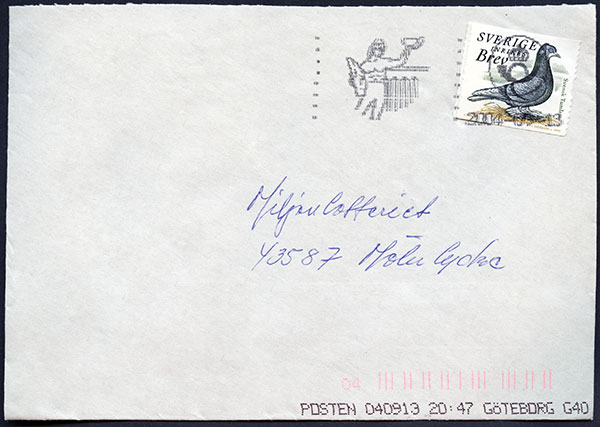 SVERIGE
INRIKES
Brev
Svensk Tumlare
2004-09-13
Miljonlotteriet
43587 Mölnlycke
04
POSTEN 040913 20:47 GÖTEBORG G40